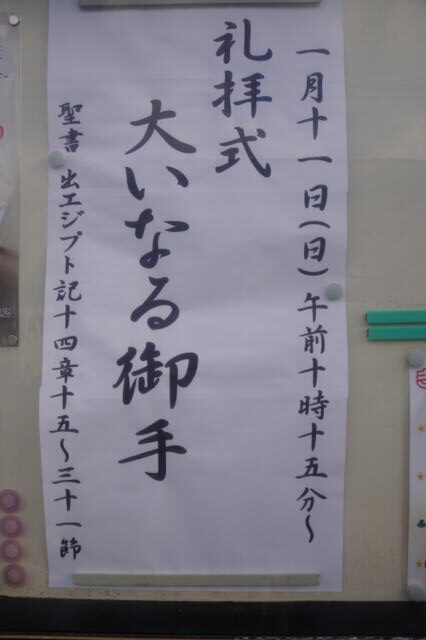 一月十一日(日)午前十時十五分～
礼拝式
大いなる御手
聖書 出エジプト記十四章十五～三十一節